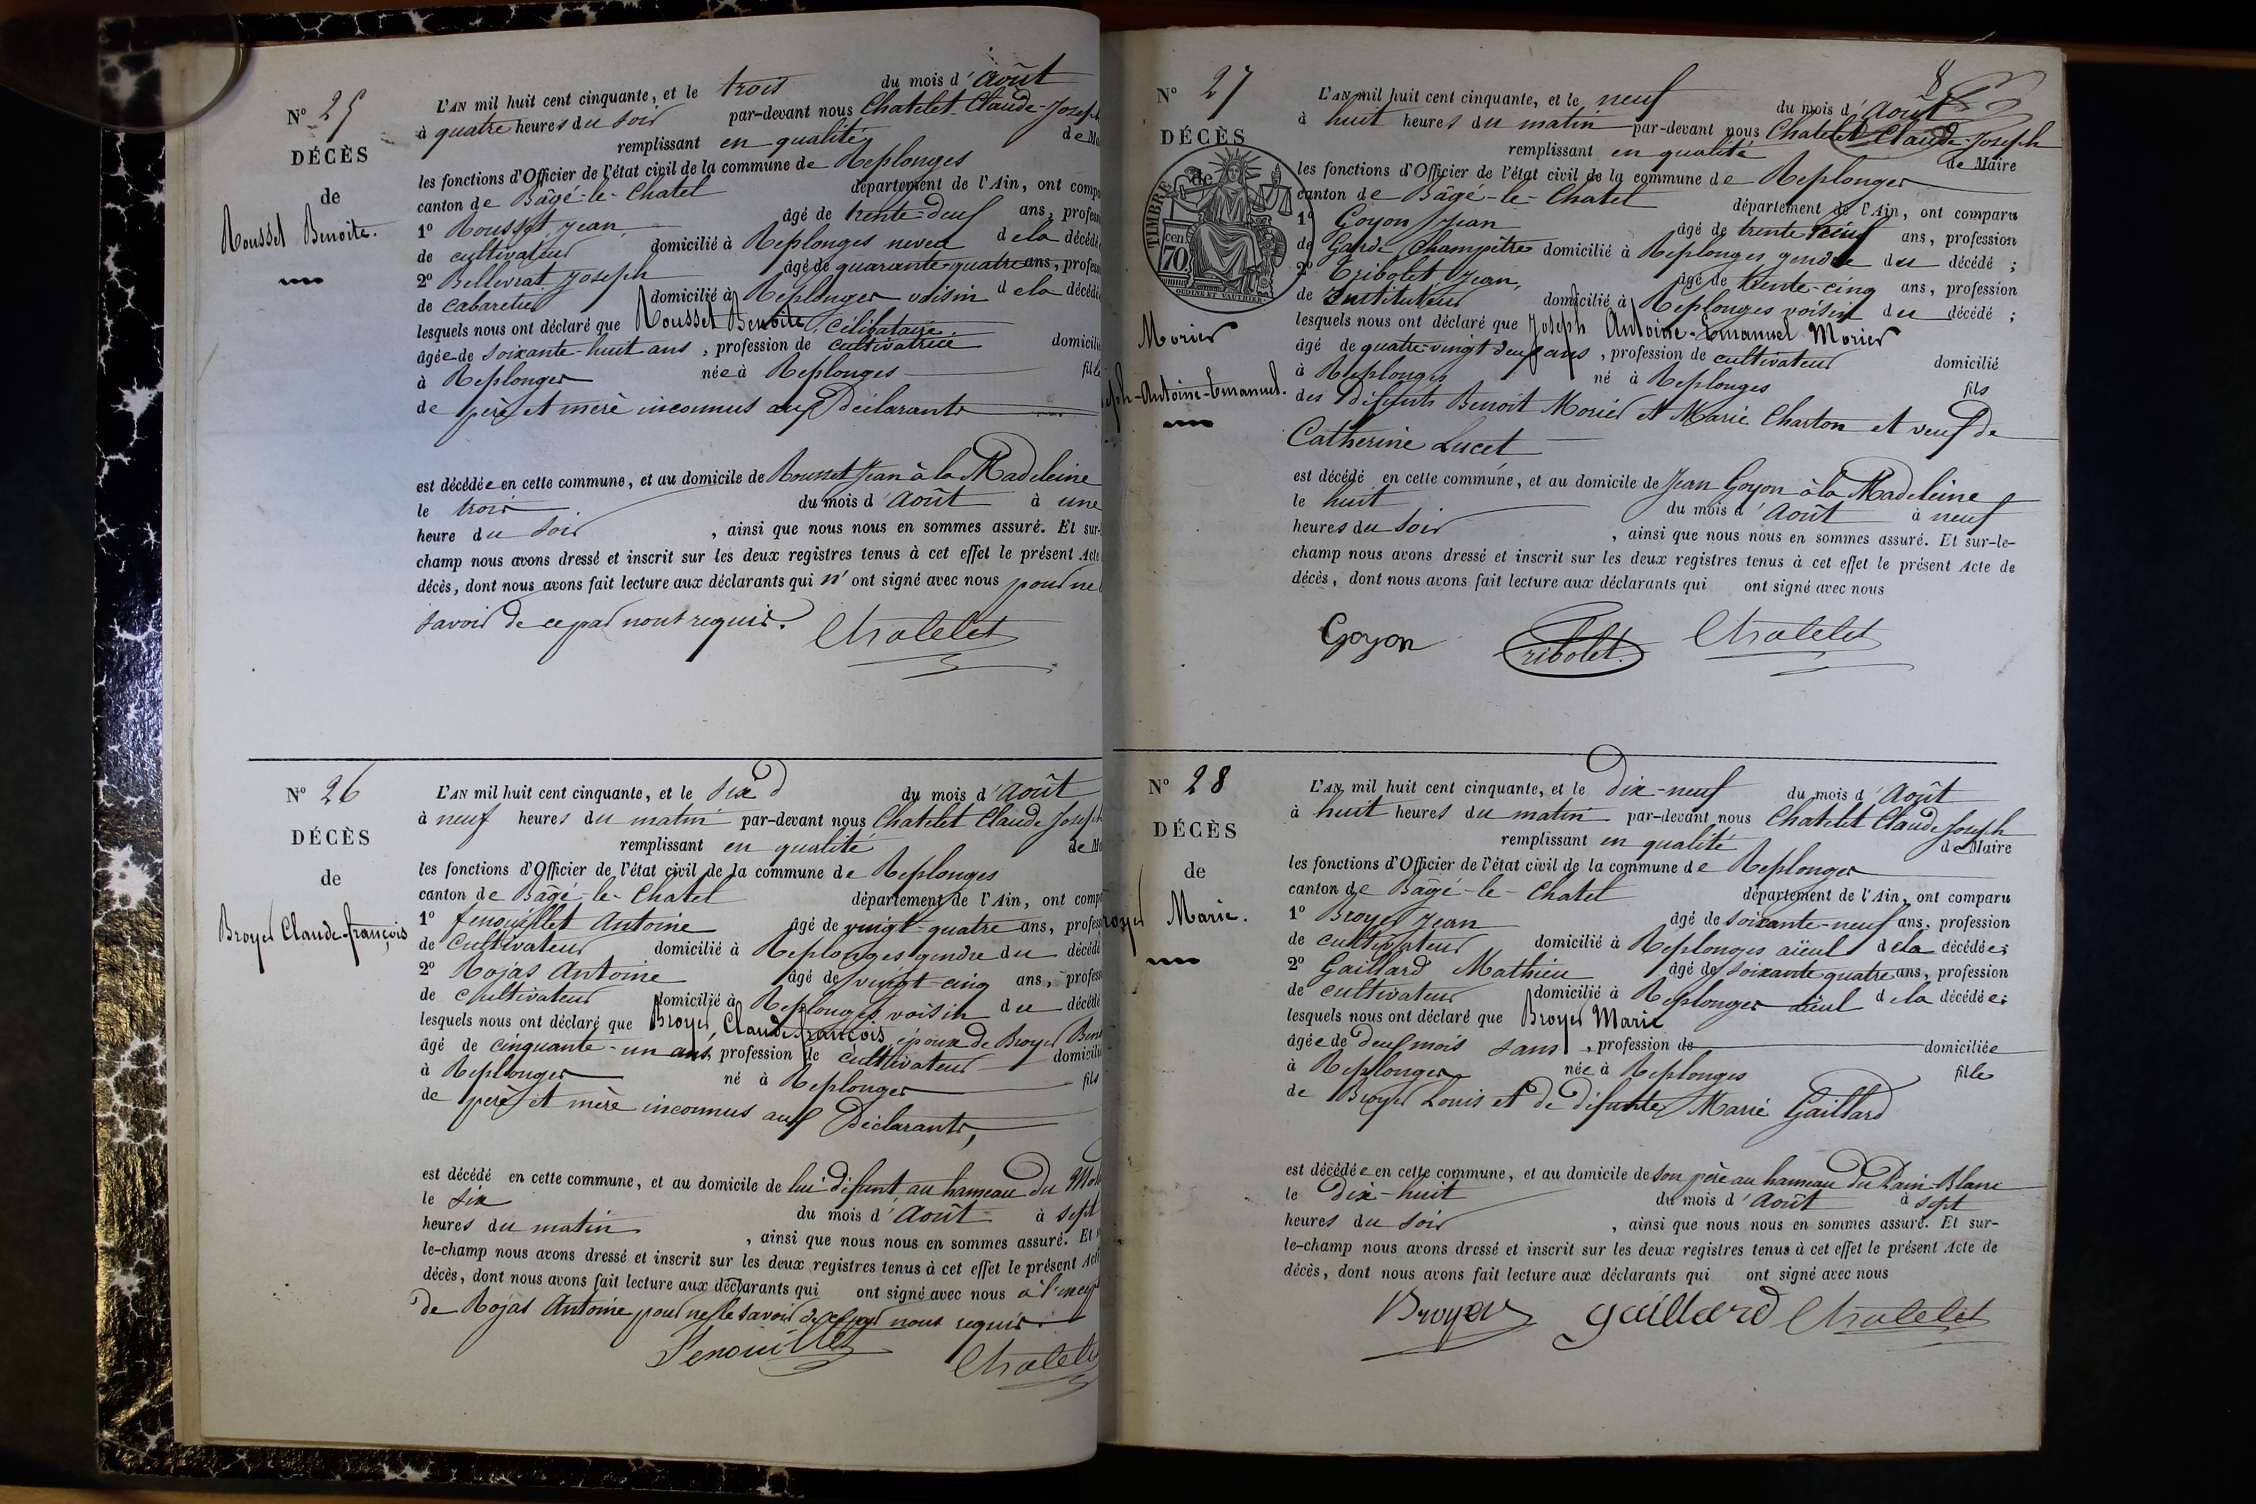 N° 25
DÉCÈS
de
Rousset Benoite.
L'AN mil huit cent cinquante, et le trois du mois d'Août
à quatre heures du soir par-devant nous Chatelet Claude-Joseph
remplissant en qualité de Ma
les fonctions d'Officier de l'état civil de la commune de Replonges
canton de Bâgé-le-Chatel département de l'Ain, ont comp
1° Rousset Jean âgé de trente-deux ans, profess
de cultivateur domicilié à Replonges neveu de la décédé
2° Bellevrat Joseph âgé de quarante-quatre ans, profess
de cabaretier domicilié à Replonges voisin de la décédé
lesquels nous ont déclaré que Rousset Benoite, célibataire
âgée de soixante-huit ans, profession de cultivatrice domicili
à Replonges née à Replonges fille
de père et mère inconnus aux Déclarants
est décédée en cette commune, et au domicile de Rousset Jean à la Madeleine
le trois du mois d'Août à une
heure du soir, ainsi que nous nous en sommes assuré. Et sur-
champ nous avons dressé et inscrit sur les deux registres tenus à cet effet le présent Acte
décès, dont nous avons fait lecture aux déclarants qui n'ont signé avec nous pour ne
savoir de ce par nous requis.
Chatelet
N° 26
DÉCÈS
de
Broyer Claude-françois
L'AN mil huit cent cinquante, et le six du mois d'Août
à neuf heures du matin par-devant nous Chatelet Claude Joseph
remplissant en qualité de Ma
les fonctions d'Officier de l'état civil de la commune de Replonges
canton de Bâgé-le-Chatel département de l'Ain, ont comp
1° fenouillet Antoine âgé de vingt-quatre ans, profess
de cultivateur domicilié à Replonges gendre du décédé
2° Rojas Antoine âgé de vingt-cinq ans, profess
de cultivateur domicilié à Replonges voisin du décédé
lesquels nous ont déclaré que Broyer, Claude françois époux de Broyer Ben
âgé de cinquante-un ans, profession de cultivateur domicilié
à Replonges né à Replonges fils
de père et mère inconnus aux Déclarants,
est décédé en cette commune, et au domicile de lui défunt au hameau du
le six du mois d'Août à sept
heures du matin, ainsi que nous nous en sommes assuré. Et
le-champ nous avons dressé et inscrit sur les deux registres tenus à cet effet le présent Act
décès, dont nous avons fait lecture aux déclarants qui ont signé avec nous à l'
de Rojas Antoine pour ne le savoir de ce par nous requis
Fenouillet Chatelet
8
N° 27
DÉCÈS
de
TIMBRE
70 cen.
OUDINET VAUTHIER
Morier
eph-Antoine-Emanuel.
L'AN mil huit cent cinquante, et le neuf du mois d'Août
à huit heures du matin par-devant nous Chatelet Claude-Joseph
remplissant en qualité de Maire
les fonctions d'Officier de l'état civil de la commune de Replonges
canton de Bâgé-le-Chatel département de l'Ain, ont comparu
1° Goyon Jean âgé de trente neuf ans, profession
de Garde Champêtre domicilié à Replonges gendre du décédé ;
2° Tribolet Jean, âgé de trente-cinq ans, profession
de Instituteur domicilié à Replonges voisin du décédé ;
lesquels nous ont déclaré que Joseph Antoine-Emanuel Morier
âgé de quatre-vingt deux ans, profession de cultivateur domicilié
à Replonges né à Replonges fils
des Défunts Benoit Morier et Marie Charton et veuf de
Catherine Lucet
est décédé en cette commune, et au domicile de Jean Goyon à la Madeleine
le huit du mois d'Août à neuf
heures du soir, ainsi que nous nous en sommes assuré. Et sur-le-
champ nous avons dressé et inscrit sur les deux registres tenus à cet effet le présent Acte de
décès, dont nous avons fait lecture aux déclarants qui ont signé avec nous
Goyon Tribolet. Chatelet
N° 28
DÉCÈS
de
royer Marie.
L'AN mil huit cent cinquante, et le Dix-neuf du mois d'Août
à huit heures du matin par-devant nous Chatelet Claude Joseph
remplissant en qualité de Maire
les fonctions d'Officier de l'état civil de la commune de Replonges
canton de Bâgé-le-Chatel département de l'Ain, ont comparu
1° Broyer Jean âgé de soixante-neuf ans, profession
de cultivateur domicilié à Replonges aïeul de la décédée;
2° Gaillard Mathieu âgé de soixante quatre ans, profession
de cultivateur domicilié à Replonges aïeul de la décédée;
lesquels nous ont déclaré que Broyer Marie
âgée de Deux mois sans, profession de domiciliée
à Replonges née à Replonges fille
de Broyer Louis et de défunte Marie Gaillard
est décédée en cette commune, et au domicile de son père au hameau du Pain-Blanc
le Dix-huit du mois d'Août à sept
heures du soir, ainsi que nous nous en sommes assuré. Et sur-
le-champ nous avons dressé et inscrit sur les deux registres tenus à cet effet le présent Acte de
décès, dont nous avons fait lecture aux déclarants qui ont signé avec nous
Broyer gaillard Chatelet